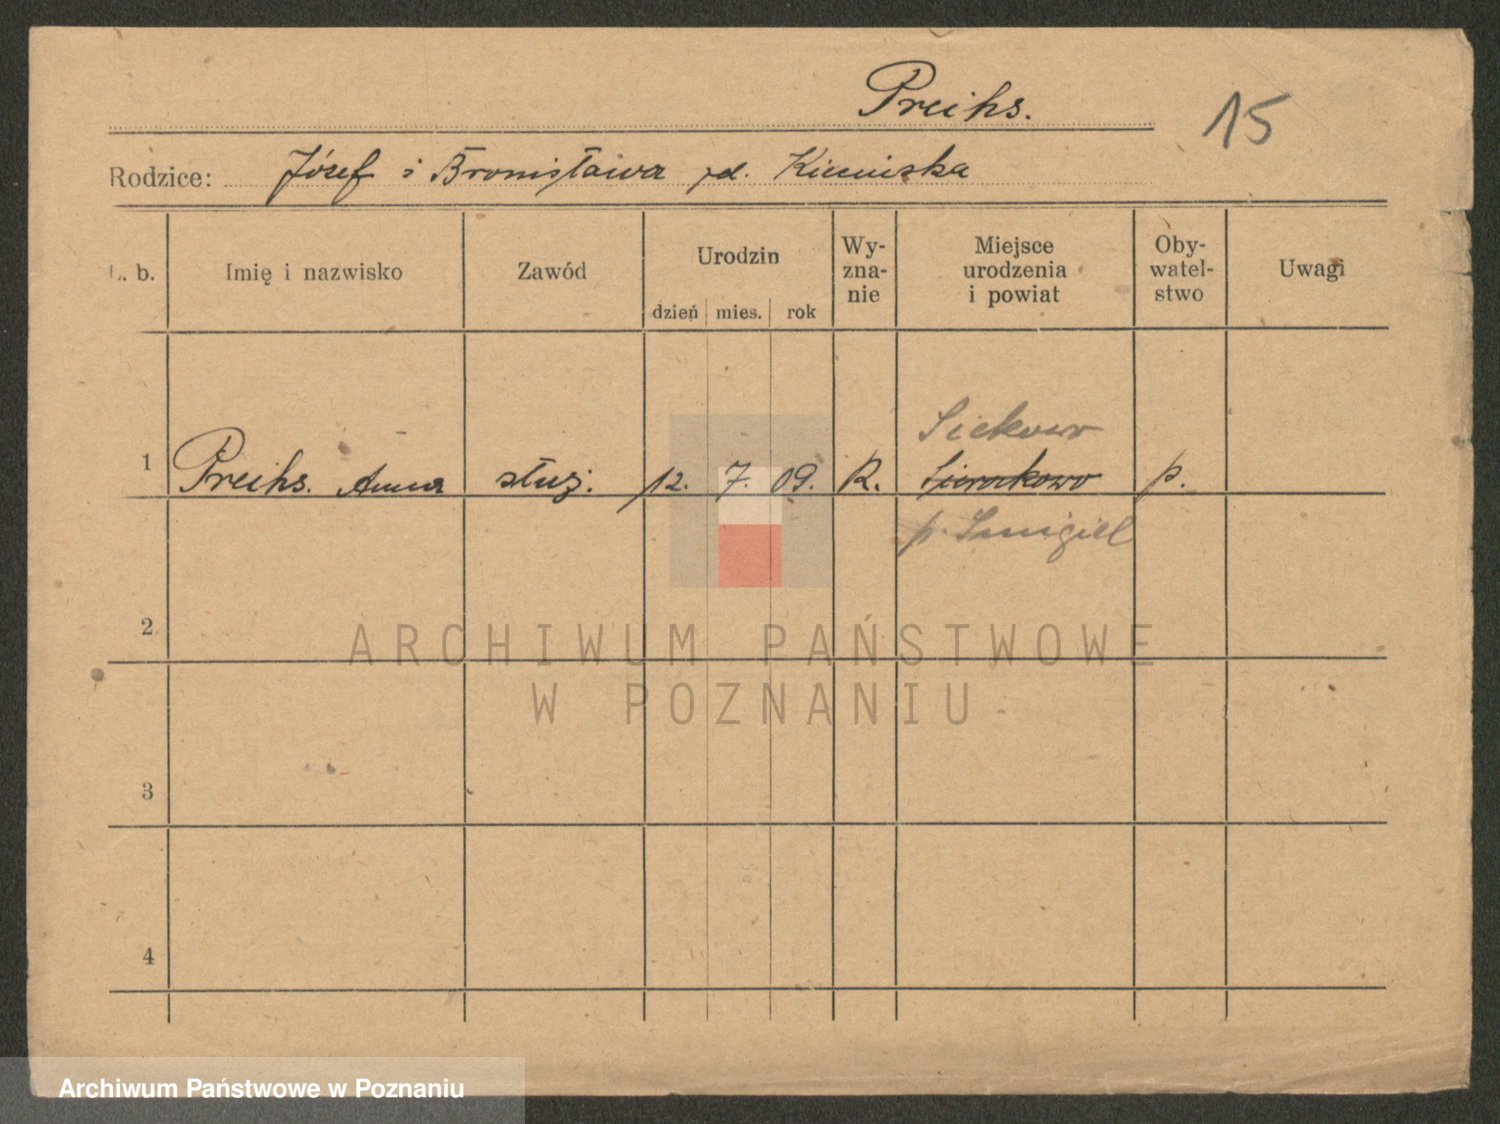 Preihs.
15
Rodzice: Józef i Bronisława zd.
L. b.
Imię i nazwisko
Zawód
Urodzin
dzień mies. rok
Wy-
zna-
nie
Miejsce
urodzenia
i powiat
Oby-
watel-
stwo
Uwagi
Siekowo
1 Preihs. Anna służ. 12. 7. 09. R. Sierockowo p.
p. Śmigiel
2
ARCHIWUM PAŃSTWOWE
W POZNANIU
3
4
Archiwum Państwowe w Poznaniu